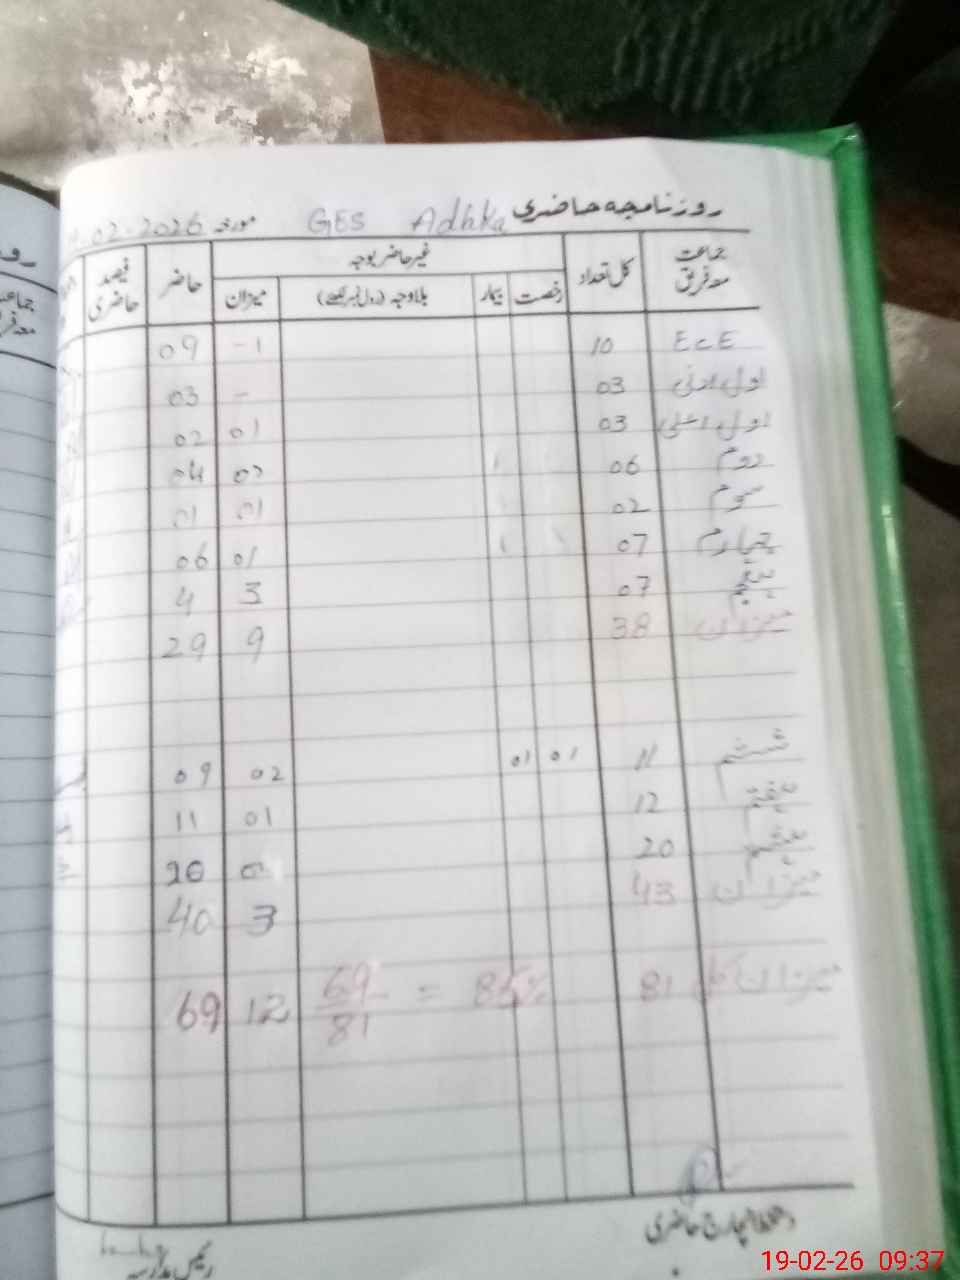 روزنامچہ حاضری GES Adhka مورخہ 02-2026
جماعت معہ فریق کل تعداد غیر حاضر بوجہ حاضر فیصد حاضری
رخصت بیمار بلاوجہ (رول نمبر لکھئے) میزان
ECE 10 -1 09
اول ادنیٰ 03 - 03
اول اعلیٰ 03 01 02
دوم 06 02 04
سوم 02 01 01
چہارم 07 01 06
پنجم 07 3 4
میزان 38 9 29
ششم 11 01 01 02 09
ہفتم 12 01 11
ہشتم 20 20
میزان 43 3 40
میزان کل 81 69/81 = 85% 12 69
دستخط انچارج حاضری
رئیس مدرسہ
19-02-26 09:37